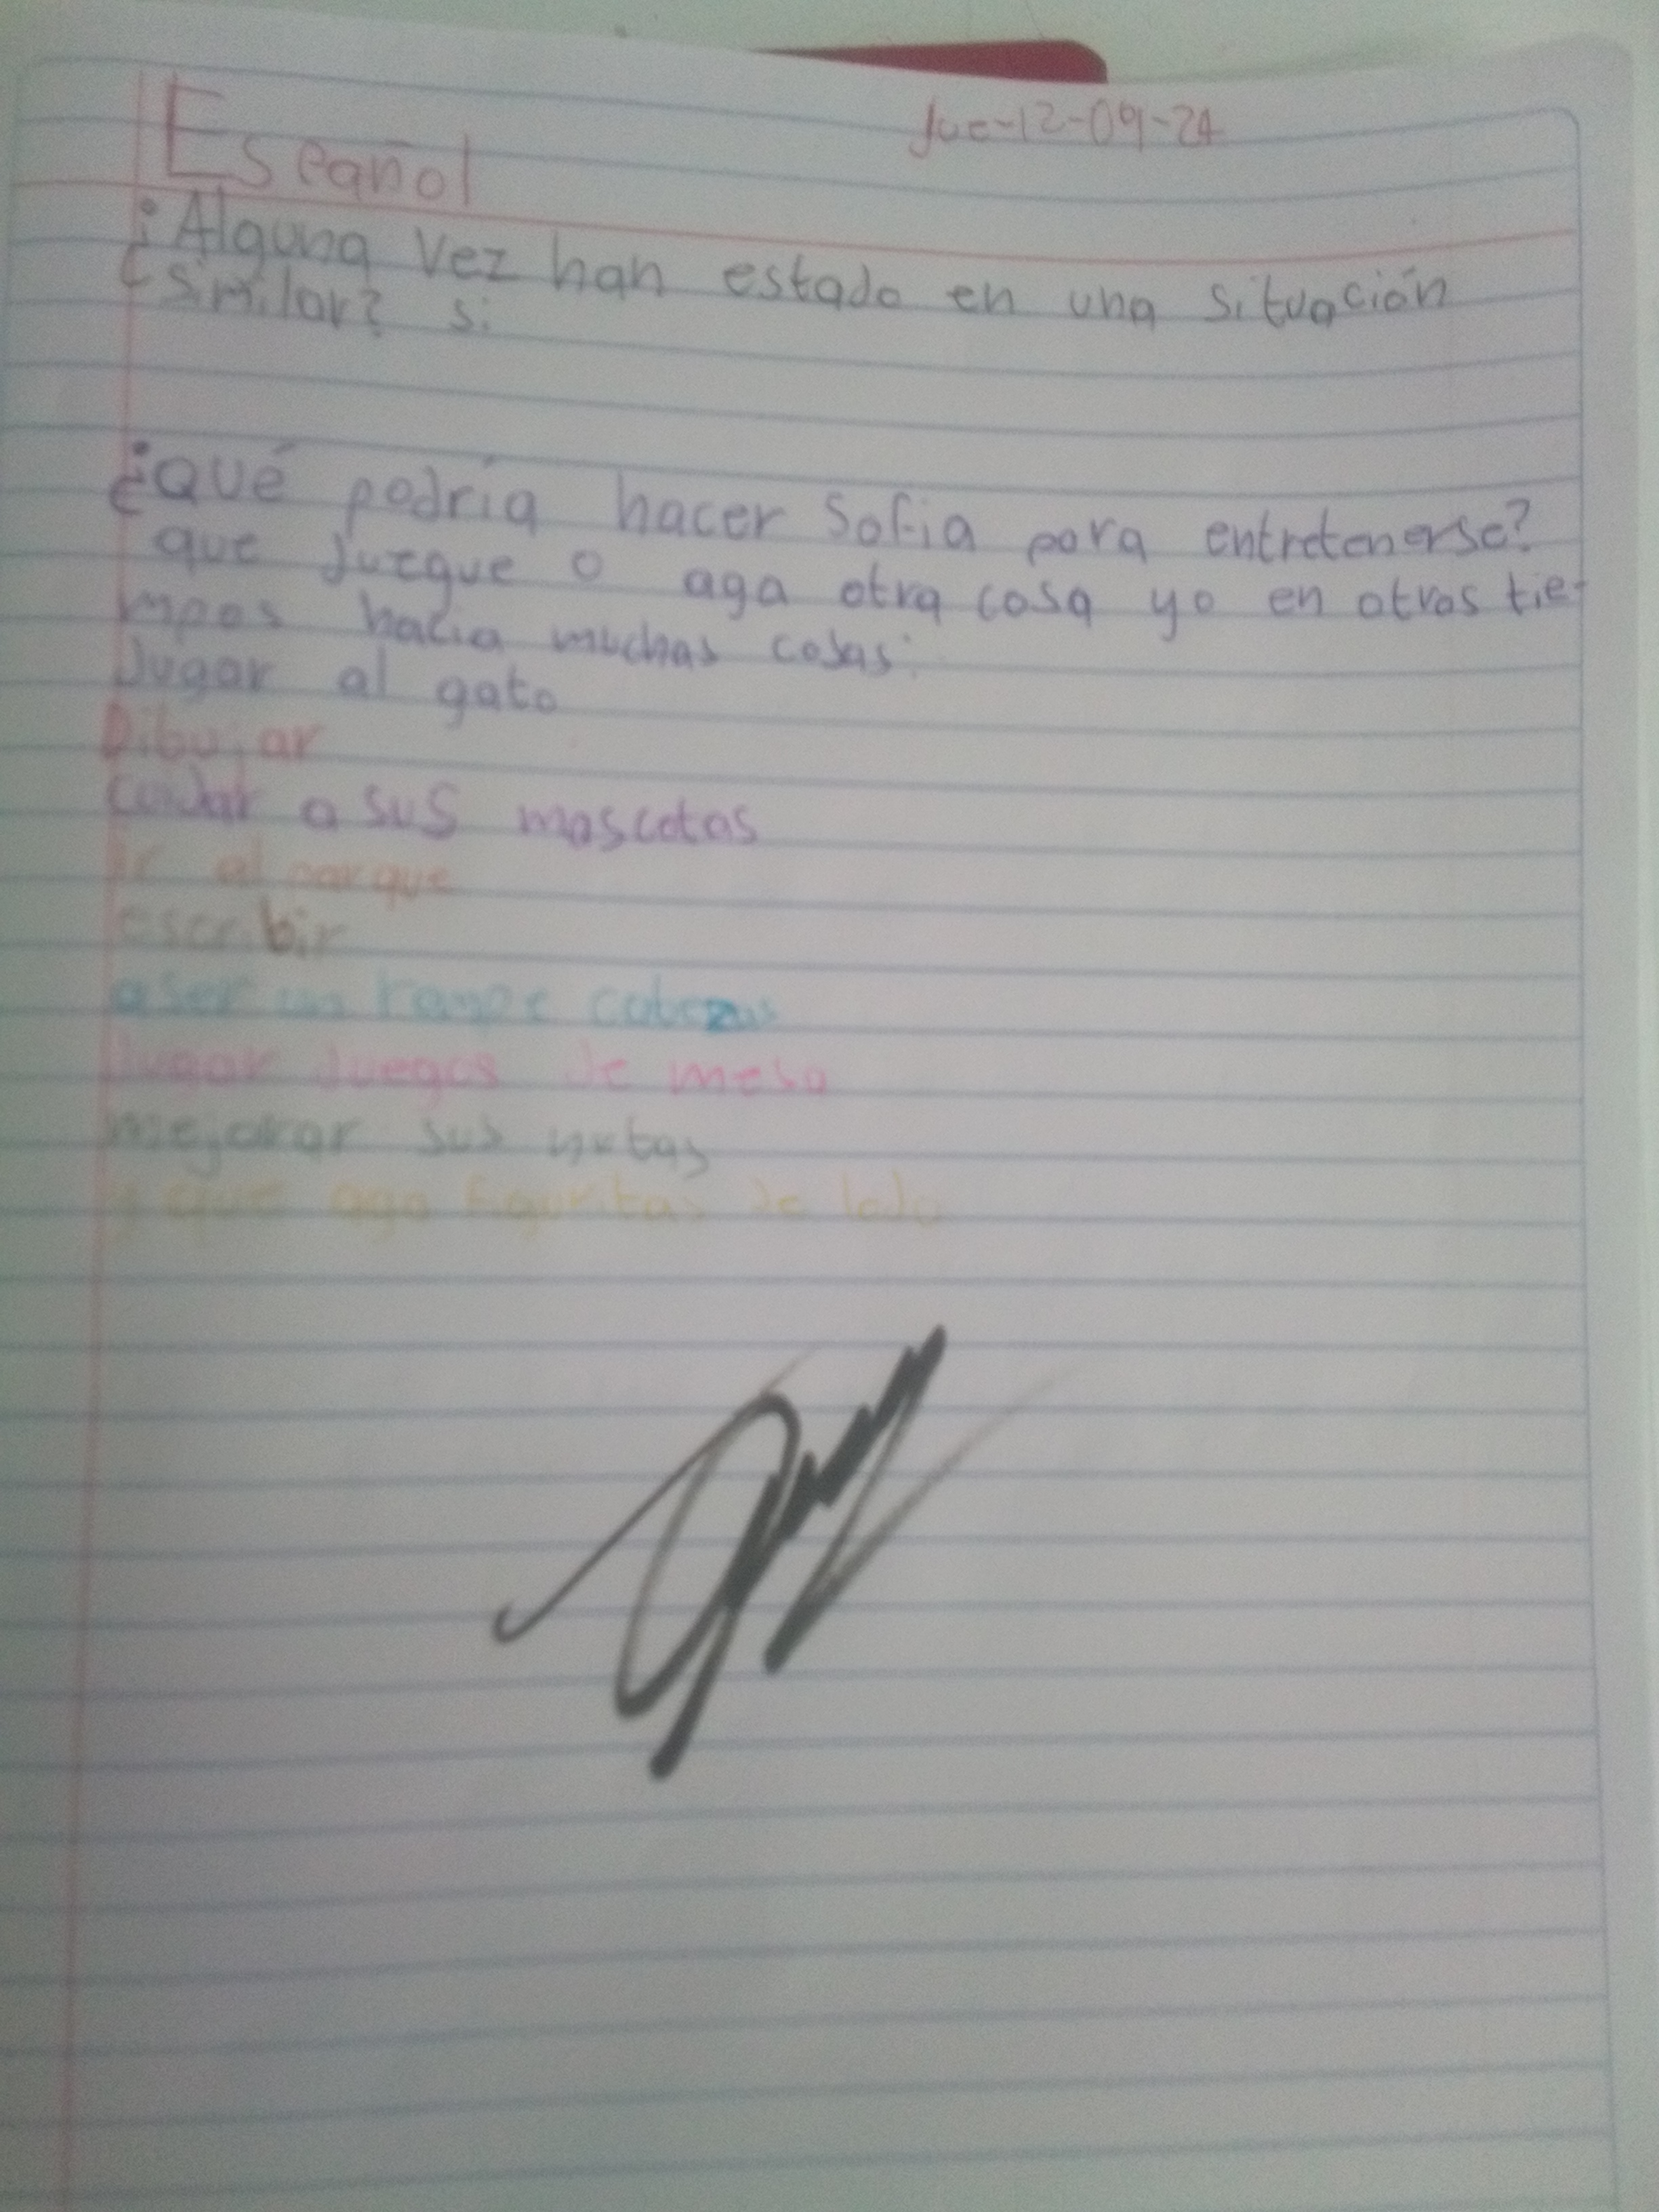 Español
Jue-12-09-24
¿Alguna vez han estado en una situación
similar? si
¿Qué podría hacer Sofia para entretenerse?
que juegue o aga otra cosa yo en otros tie-
mpos hacia muchas cosas:
Jugar al gato
Dibujar
cuidar a sus mascotas
ir al parque
escribir
aser un rompe cabezas
Jugar Juegos de mesa
mejorar sus notas
y que aga figuritas de lodo